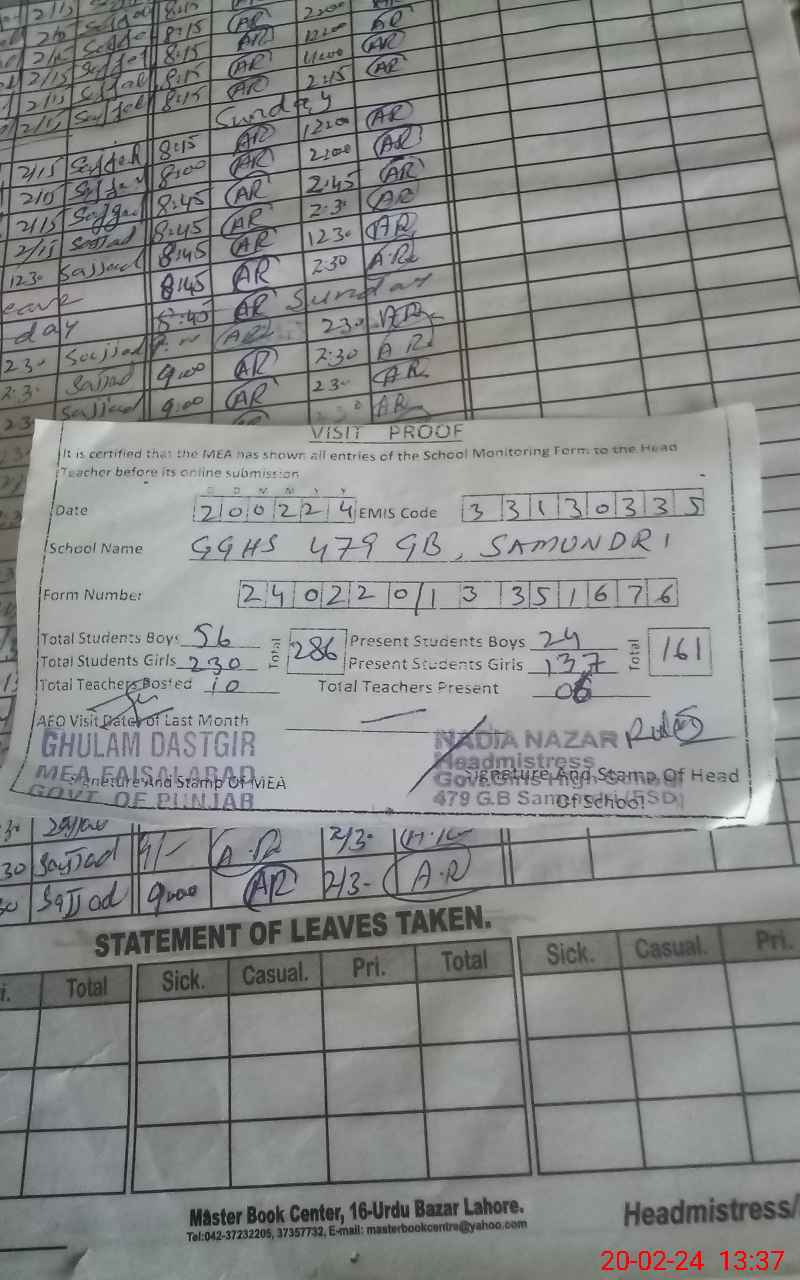 8:15 AR 12:00 AR
2/15 8:15 AR 4:00 AR
2/15 8:15 AR 2:15 AR
Sunday
8:15 AR 12:00 AR
2/15 8:00 AR 2:00 AR
8:45 AR 2:45 AR
2/15 8:45 AR 2:3 AR
2/15 Sajjad 8:45 AR 12 30 AR
12 30 Sajjad 8:45 AR 2:30 A.R
eave 8:45 AR Sunday
day AR 2 30 AR
2 30 Sajjad AR 2:30 A R
2:3 Sajjad 9:00 AR 2 3 AR
2 3 Sajjad 9:00 AR AR
VISIT PROOF
It is certified that the MEA has shown all entries of the School Monitoring Form to the Head
Teacher before its online submission
D D M M Y Y
Date 2 0 0 2 2 4 EMIS Code 3 3 1 3 0 3 3 5
School Name GGHS 479 GB, SAMUNDRI
Form Number 2 4 0 2 2 0 1 3 3 5 1 6 7 6
Total Students Boys 56 Total 286 Present Students Boys 24 Total 161
Total Students Girls 230 Present Students Girls 137
Total Teachers Posted 10 Total Teachers Present 06
AEO Visit Date of Last Month —
GHULAM DASTGIR NADIA NAZAR
MEA FAISALABAD Headmistress
Signeture And Stamp Of MEA Signeture And Stamp Of Head
GOVT OF PUNJAB Of School
Gov. Girls High School
479 G.B Samundri (FSD)
30 Sajjad 9/- A.R 2/3- A.R
30 Sajjad 9:00 AR 2/3- A.R
STATEMENT OF LEAVES TAKEN.
i. Total Sick. Casual. Pri. Total Sick. Casual. Pri.
Master Book Center, 16-Urdu Bazar Lahore.
Tel:042-37232205, 37357732, E-mail: masterbookcentre@yahoo.com
Headmistress/
20-02-24 13:37